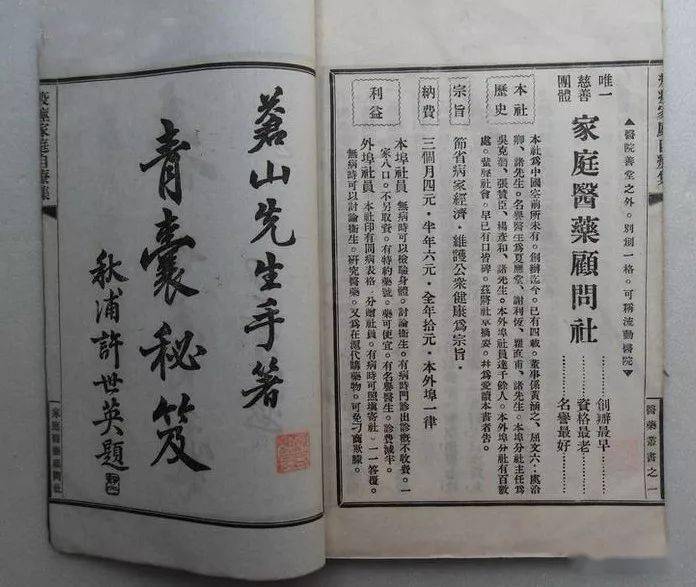 ▲醫院善堂之外。別創一格。可稱流動醫院▼
唯一
慈善
團體
家庭醫藥顧問社
創辦最早
資格最老
名譽最好
本社
歷史
本社爲中國空前所未有。創辦迄今。已有四載。董事
屈文六。
諸先生。名譽醫生爲夏應堂、謝利恆、
諸先生。本外埠社員達千餘人。本外埠分社有百數
處。蜚聲社會。早已有口皆碑。茲將社章摘要。
爲愛讀本書者告。
宗旨
節省病家經濟。維護公衆健康爲宗旨。
納費
三個月四元。半年六元。全年拾元。本外埠一律
利益
本埠社員
無病時可以檢驗身體。討論衞生。有病時門診出診概不收費。一
家八口。不另取資。有特約藥號。藥可便宜。有名譽醫生。診費減半。
外埠社員
本社印有問病表格。分贈社員。有病時可照塡寄社。一一答覆。
無病時可以討論衞生。研究醫藥。又爲在滬代購藥物。可免刁商欺朦。
醫藥叢書之一
蒼山先生手著
青囊秘笈
秋浦許世英題
家庭醫藥顧問社